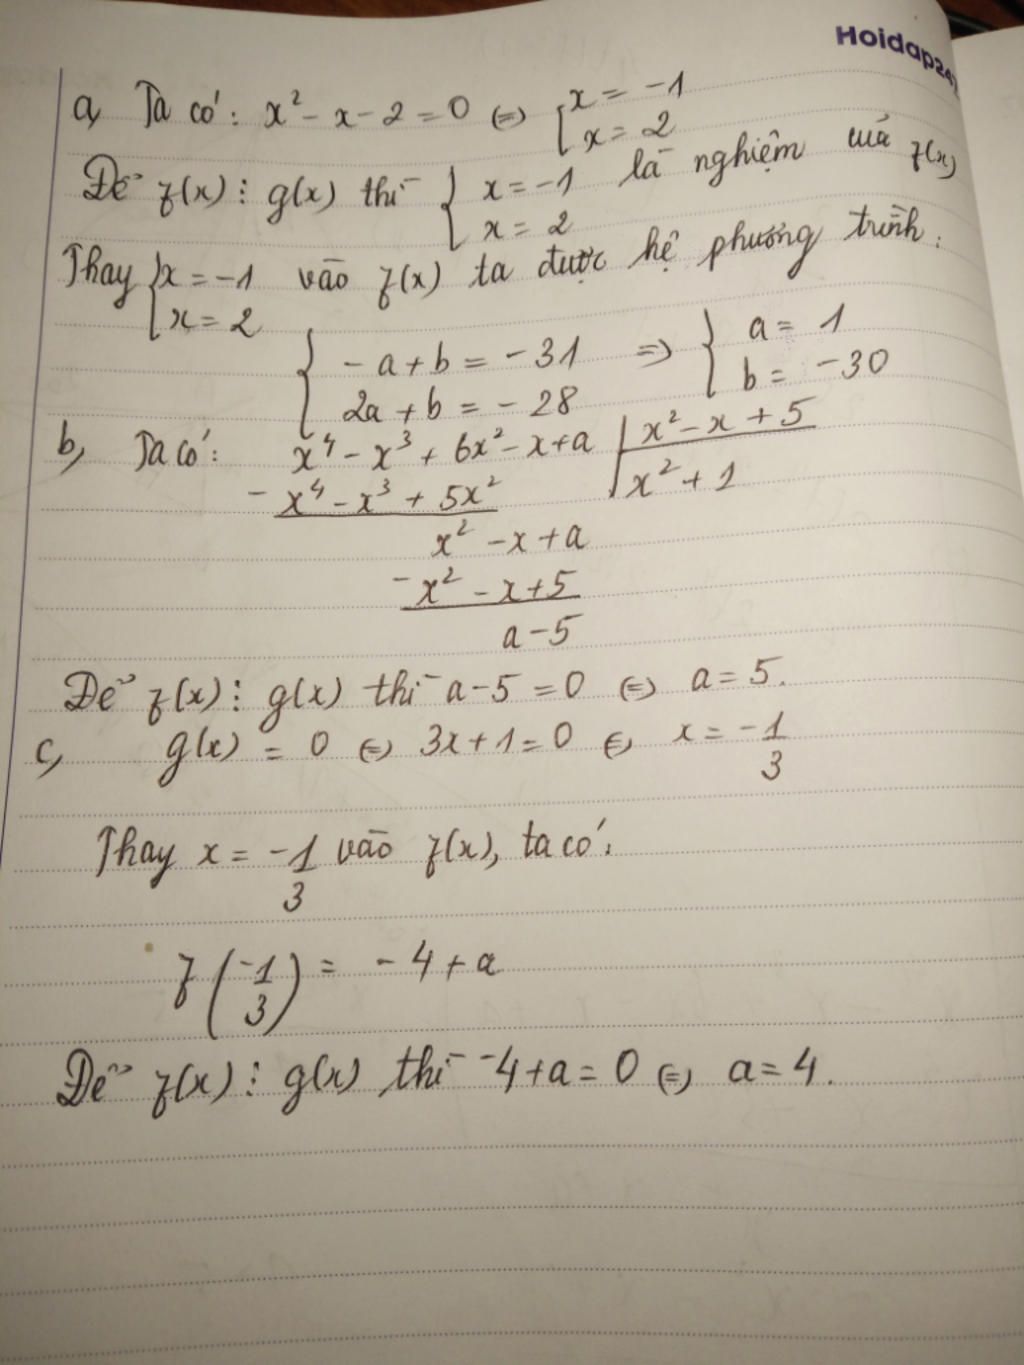 Hoidap247
a, Ta có: x² - x - 2 = 0 (=) [x = -1
x = 2
Để f(x) ⋮ g(x) thì { x = -1 là nghiệm của f(x)
x = 2
Thay {x = -1 vào f(x) ta được hệ phương trình:
x = 2
{ -a + b = -31 => { a = 1
2a + b = -28 b = -30
b, Ta có: x⁴ - x³ + 6x² - x + a | x² - x + 5
- x⁴ - x³ + 5x² x² + 1
x² - x + a
- x² - x + 5
a - 5
Để f(x) ⋮ g(x) thì a - 5 = 0 (=) a = 5.
c, g(x) = 0 (=) 3x + 1 = 0 (=) x = -1/3
Thay x = -1/3 vào f(x), ta có:
f(-1/3) = -4 + a
Để f(x) ⋮ g(x) thì -4 + a = 0 (=) a = 4.